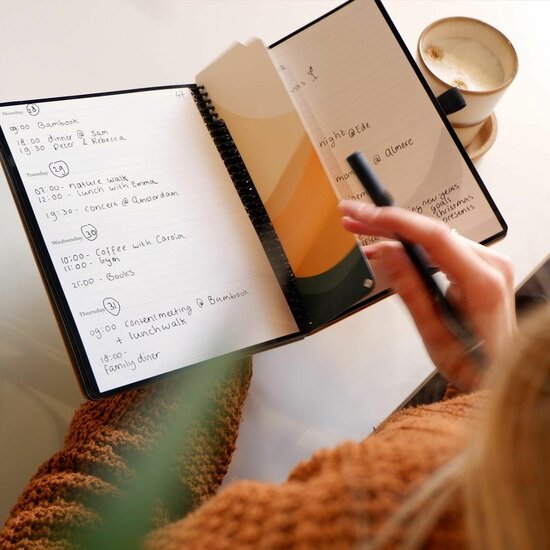 Monday 28
09:00 Bambook
18:00 dinner @ Sam
19:30 Peter & Rebecca
Tuesday 29
07:00 - nature walk
12:00 - lunch with Emma
19:30 - concert @ Amsterdam
Wednesday 30
10:00 - Coffee with Carola
11:00 - Gym
21:00 - Books
Thursday 31
09:00 content meeting @ Bambook
+ lunchwalk
18:00 -
family diner
night @ Ede
@ Almere
new years
goals
christmas
presents